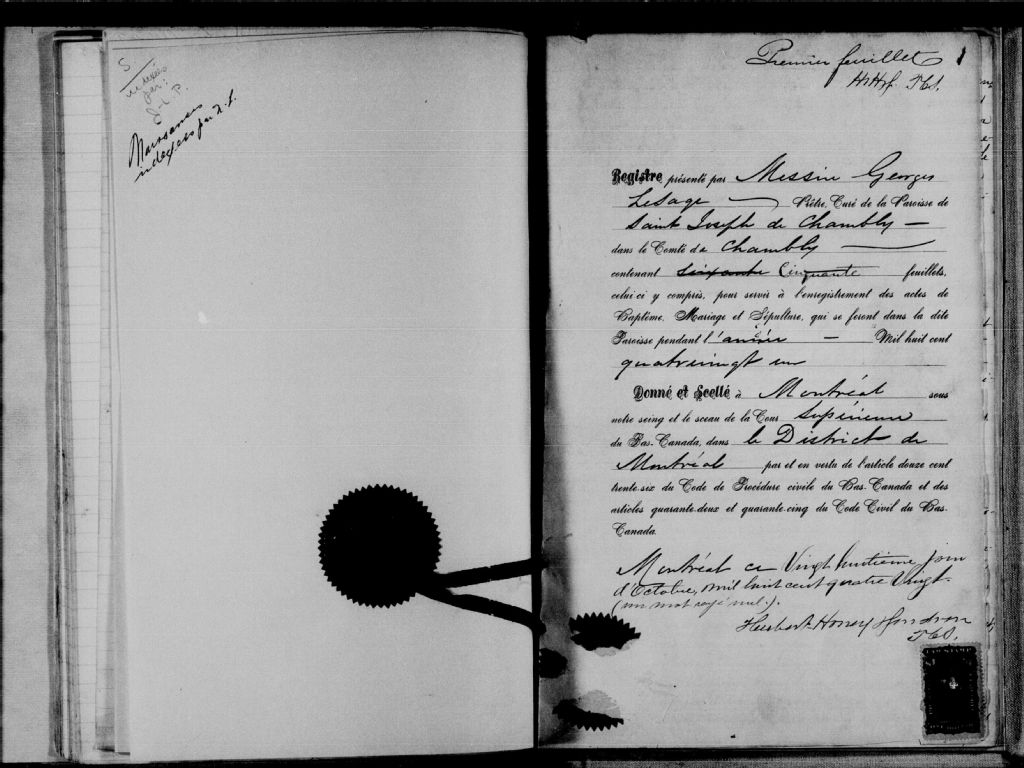 S
indexées
par:
J-L P.
Naissances
indexées par
Premier feuillet 1
HHH. JCS.
Registre présenté par Messire Georges
LeSage Prêtre, Curé de la Paroisse de
Saint Joseph de Chambly
dans le Comté de Chambly
contenant Soixante Cinquante feuillets,
celui-ci y compris, pour servir à l'enregistrement des actes de
Baptême, Mariage et Sépulture, qui se feront dans la dite
Paroisse pendant l'année Mil huit cent
quatrevingt un
Donné et Scellé à Montréal sous
notre seing et le sceau de la Cour Supérieure
du Bas-Canada, dans le District de
Montréal par et en vertu de l'article douze cent
trente-six du Code de Procédure civile du Bas-Canada et des
articles quarante-deux et quarante-cinq du Code Civil du Bas-
Canada.
Montréal ce Vingt huitième jour
d'Octobre, mil huit cent quatre Vingt.
(un mot rayé nul.).
Hubert Honey